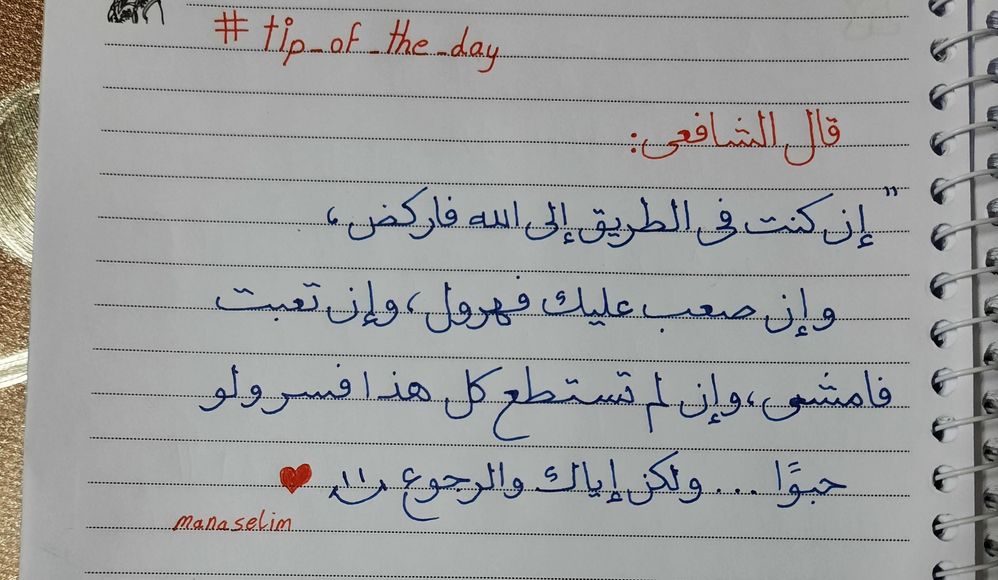 # tip_of_the_day
قال الشافعى:
"إن كنت فى الطريق إلى الله فاركض،
وإن صعب عليك فهرول، وإن تعبت
فامشى، وإن لم تستطع كل هذا فسر ولو
حبوًا ... ولكن إياك والرجوع" ♥
manaselim